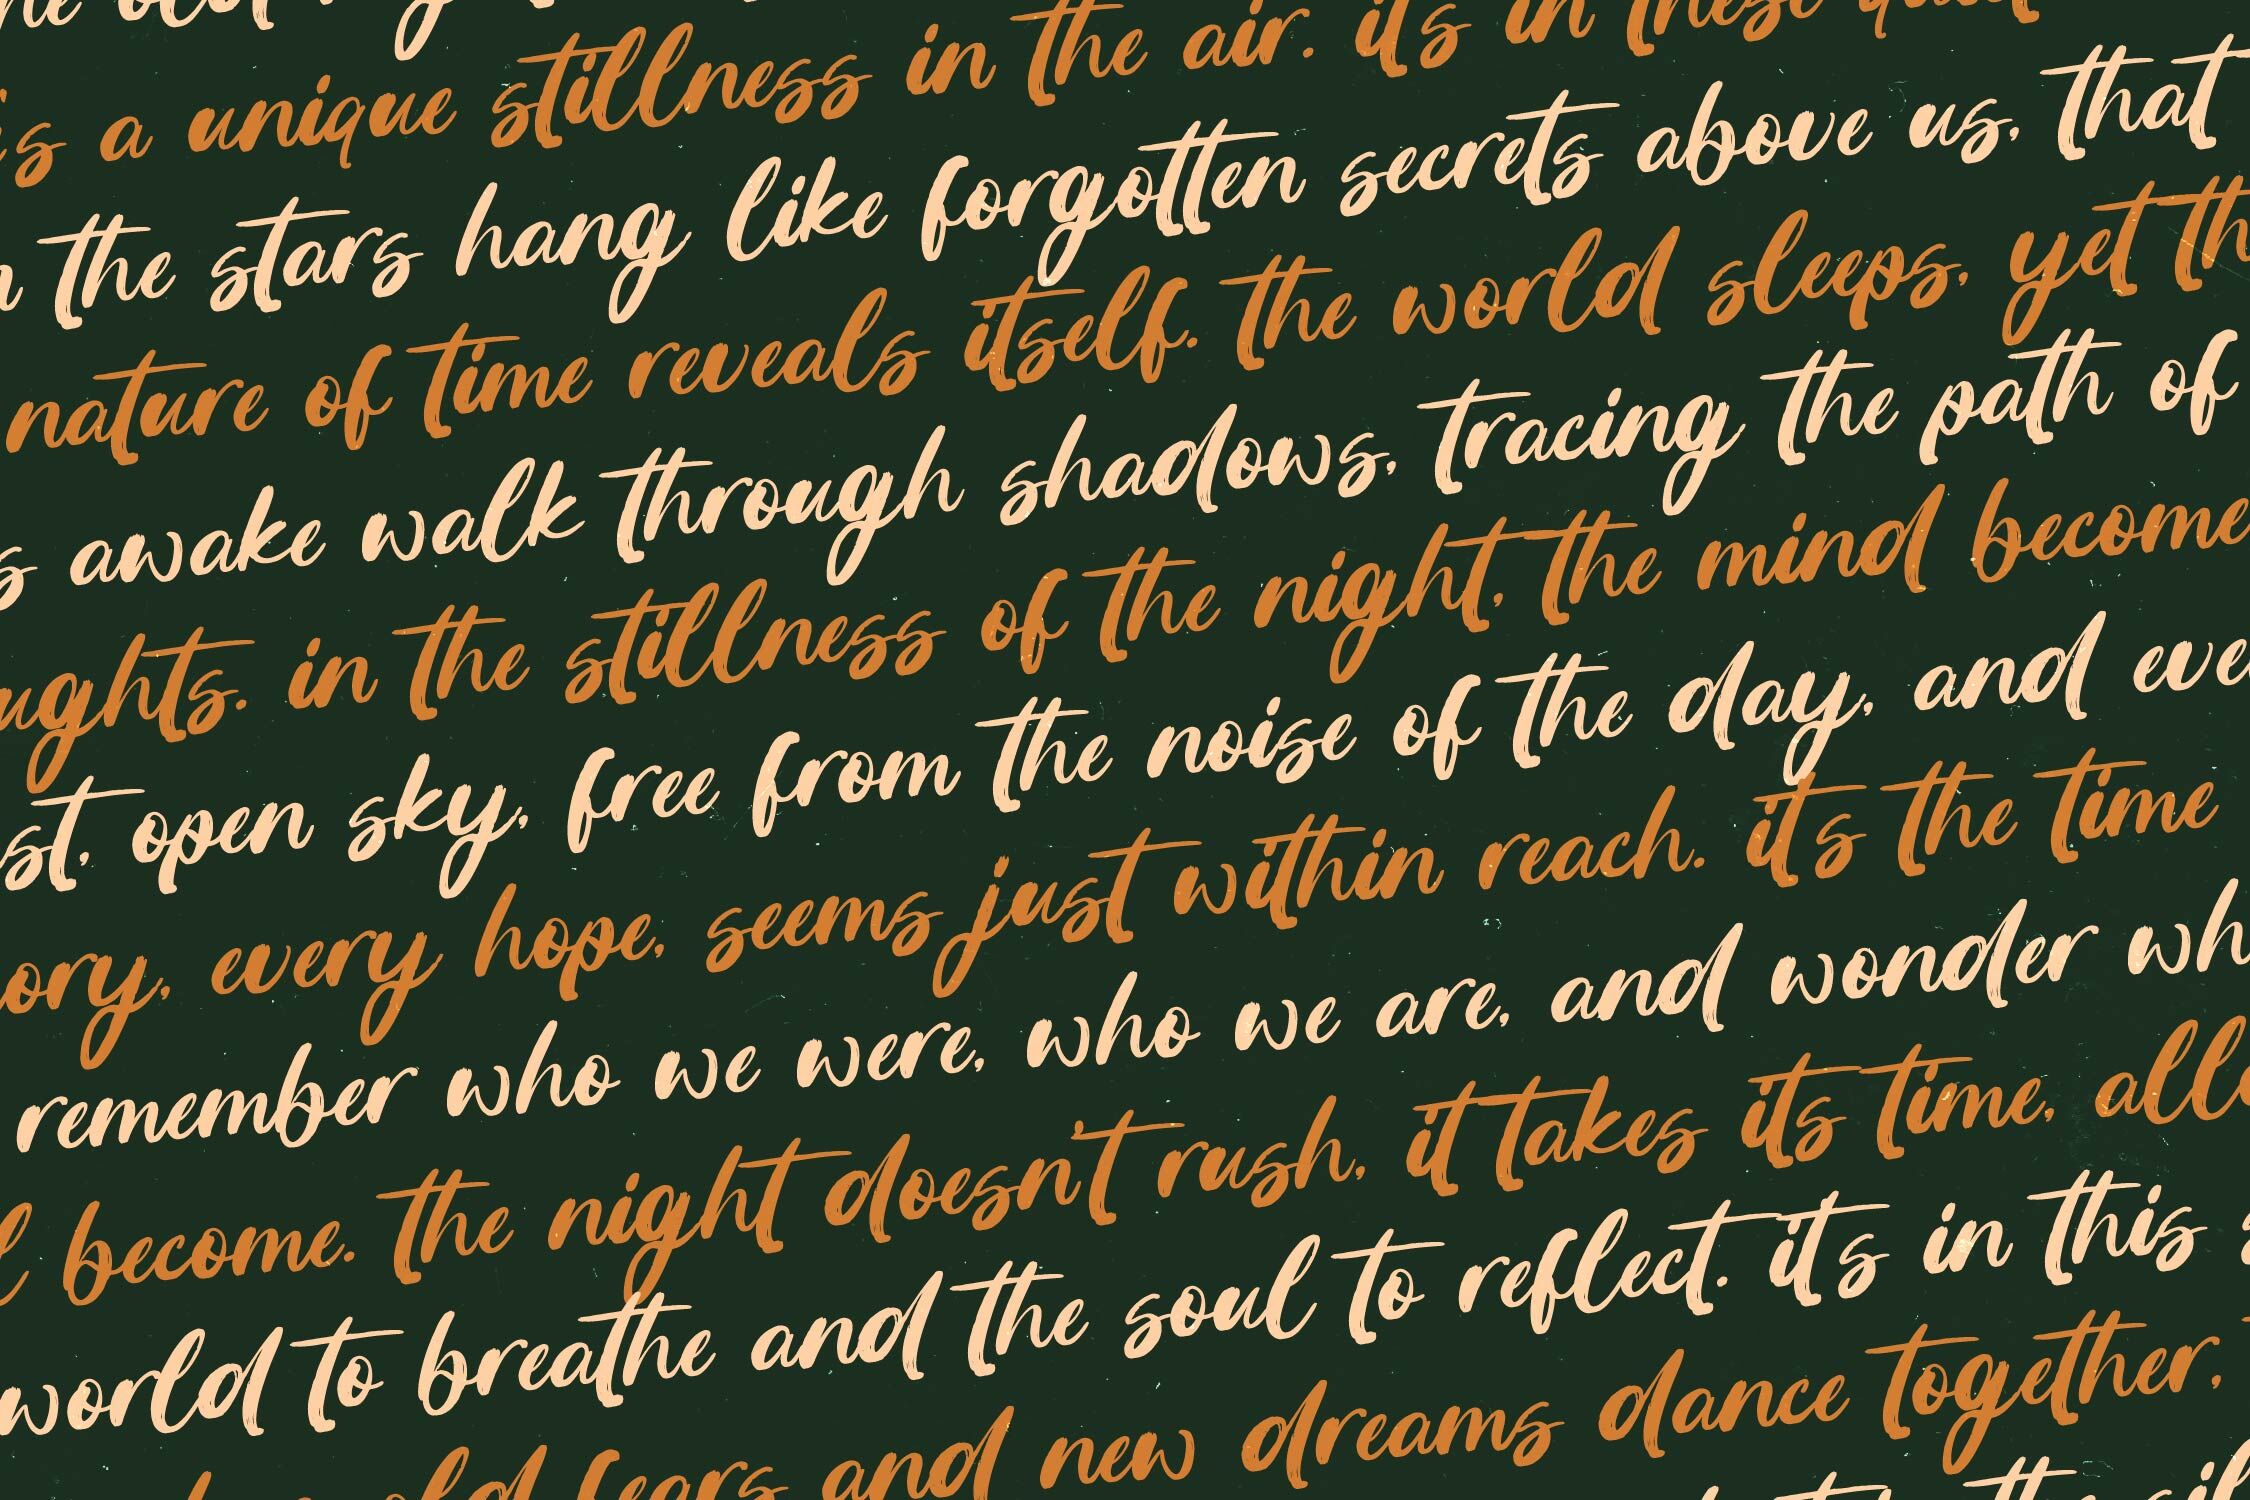 is a unique stillness in the air. it's in these
the stars hang like forgotten secrets above us, that
nature of time reveals itself. the world sleeps, yet th
s awake walk through shadows, tracing the path of
ughts. in the stillness of the night, the mind become
st, open sky, free from the noise of the day, and eve
ory, every hope, seems just within reach. it's the time
remember who we were, who we are, and wonder wh
l become. the night doesn't rush, it takes its time, all
world to breathe and the soul to reflect. it's in this s
old fears and new dreams dance together,